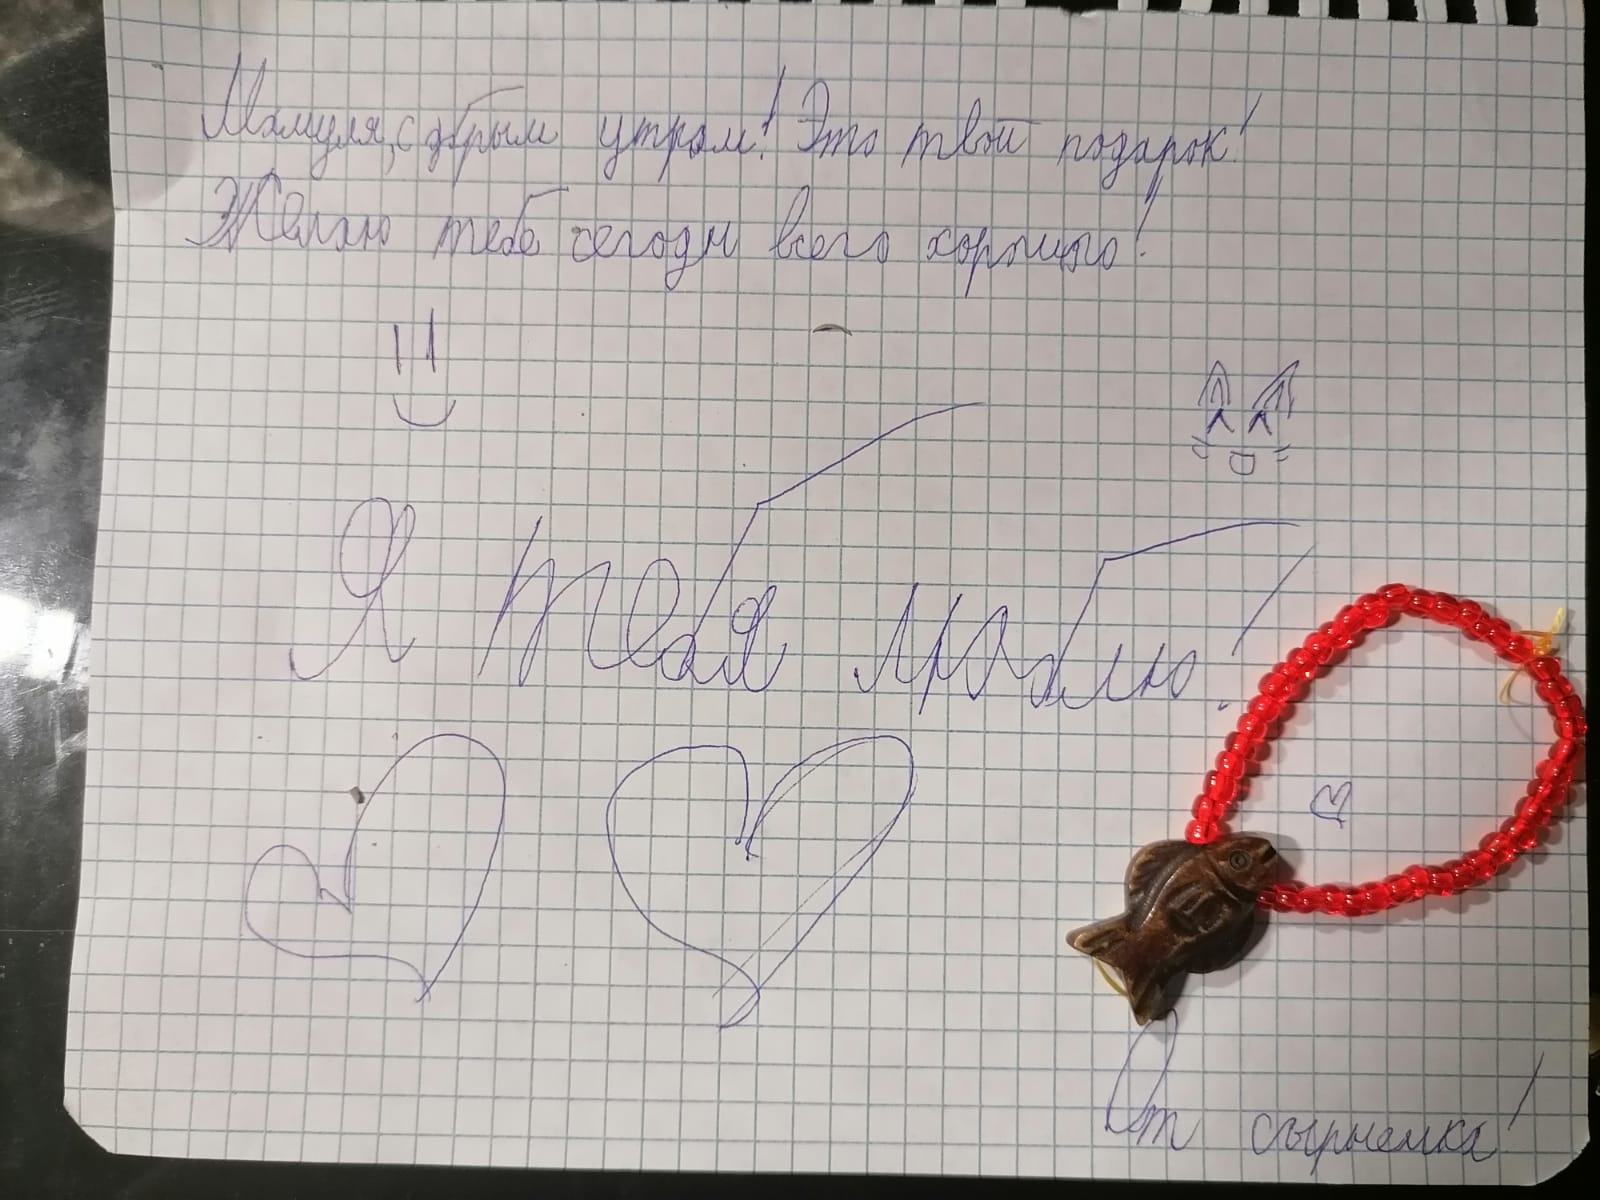 Мамуля, с дбрым утром! Это твой подарок!
Желаю тебе сегодн всего хорошего!
Я тебя люблю!
От сырнемка!